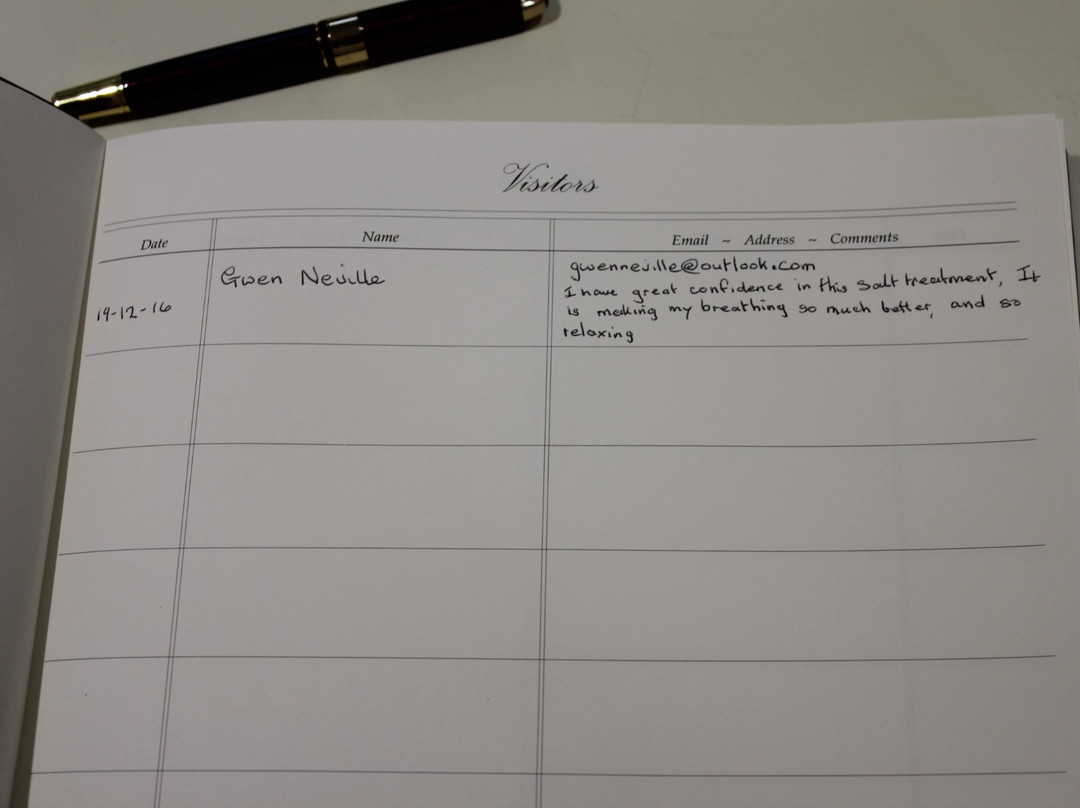 Visitors
Date Name Email ~ Address ~ Comments
Gwen Neville gwenneville@outlook.com
I have great confidence in this Salt treatment, It
19-12-16 is making my breathing so much better, and so
relaxing